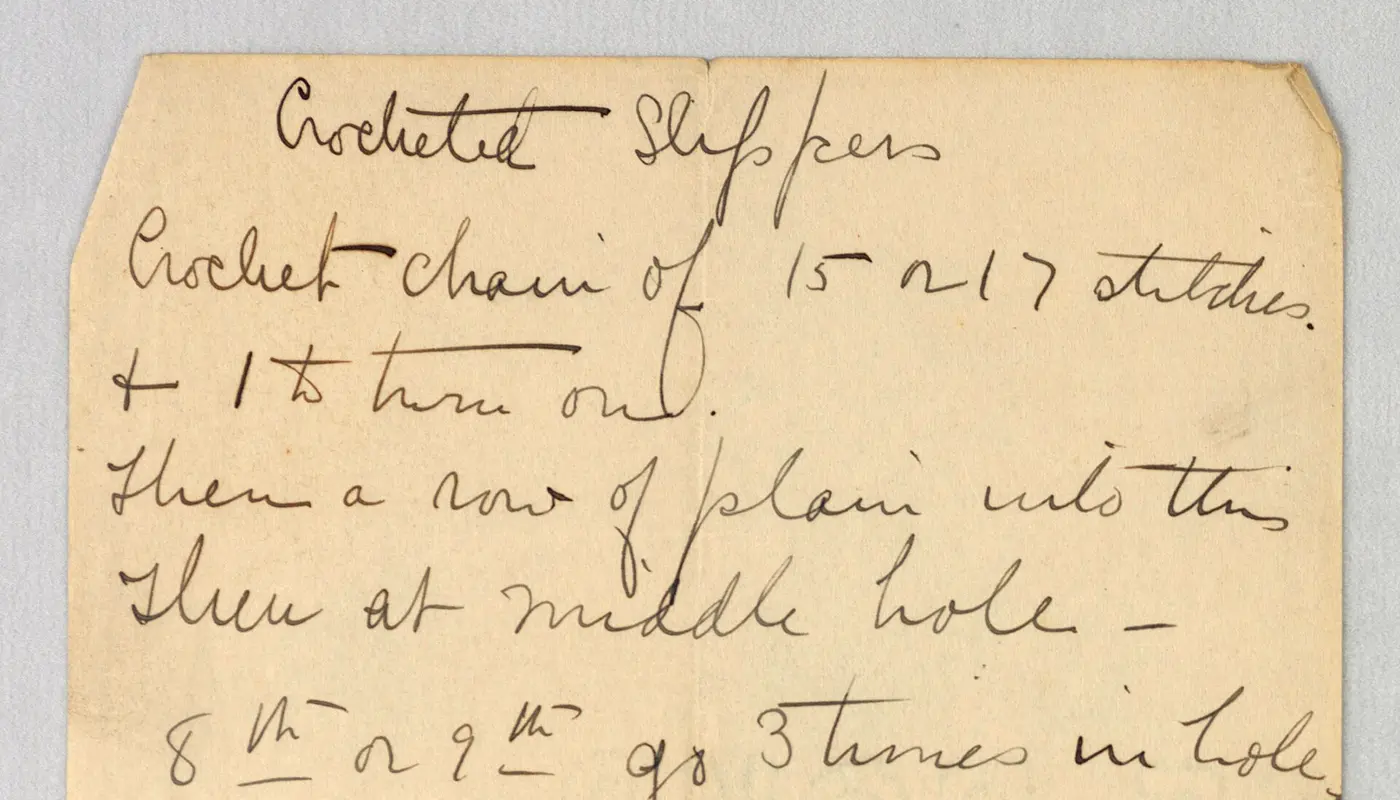 Crocheted Slippers
Crochet chain of 15 or 17 stitches.
+ 1 to turn on.
Then a row of plain into this
Then at middle hole –
8th or 9th go 3 times in hole.